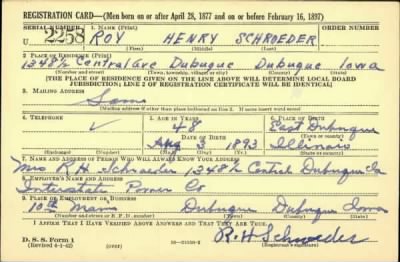 REGISTRATION CARD—(Men born on or after April 28, 1877 and on or before February 16, 1897)
SERIAL NUMBER 1. NAME (Print) ORDER NUMBER
U 2258 ROY HENRY SCHROEDER
(First) (Middle) (Last)
2. PLACE OF RESIDENCE (Print)
1348½ Central Ave Dubuque Dubuque Iowa
(Number and street) (Town, township, village, or city) (County) (State)
[THE PLACE OF RESIDENCE GIVEN ON THE LINE ABOVE WILL DETERMINE LOCAL BOARD
JURISDICTION; LINE 2 OF REGISTRATION CERTIFICATE WILL BE IDENTICAL]
3. MAILING ADDRESS
Same
[Mailing address if other than place indicated on line 2. If same insert word same]
4. TELEPHONE 5. AGE IN YEARS 6. PLACE OF BIRTH
✓ 48 East Dubuque
DATE OF BIRTH (Town or county)
Aug 3 1893 Illinois
(Exchange) (Number) (Mo.) (Day) (Yr.) (State or country)
7. NAME AND ADDRESS OF PERSON WHO WILL ALWAYS KNOW YOUR ADDRESS
Mrs R. H. Schroeder 1348½ Central Dubuque Ia
8. EMPLOYER'S NAME AND ADDRESS
Interstate Power Co
9. PLACE OF EMPLOYMENT OR BUSINESS
10th Main Dubuque Dubuque Iowa
(Number and street or R. F. D. number) (Town) (County) (State)
I AFFIRM THAT I HAVE VERIFIED ABOVE ANSWERS AND THAT THEY ARE TRUE.
R. H. Schroeder
D. S. S. Form 1
(Revised 4-1-42) (over) (Registrant's signature)